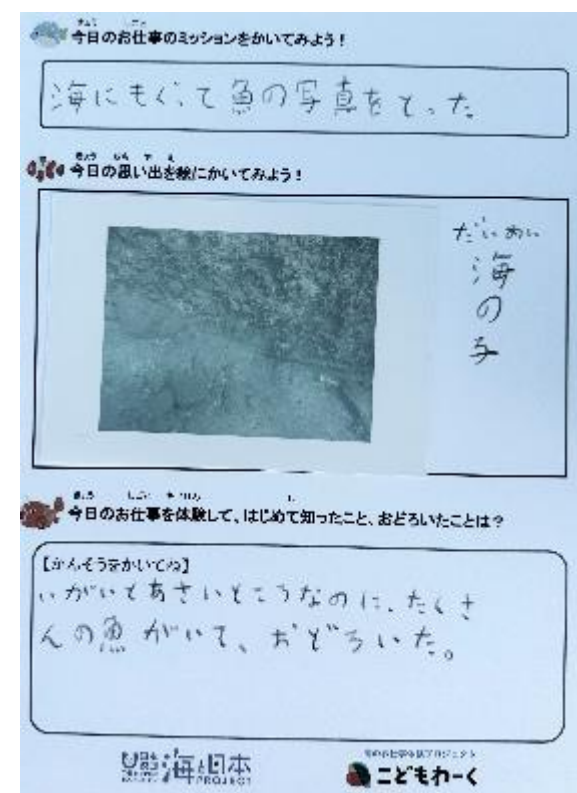 今日のお仕事のミッションをかいてみよう！
海にもぐって魚の写真をとった
今日の思い出を絵にかいてみよう！
だいめい
海の子
今日のお仕事を体験して、はじめて知ったこと、おどろいたことは？
【かんそうをかいてね】
いがいとあさいところなのに、たくさ
んの魚がいて、おどろいた。
海と日本
PROJECT
こどもわーく